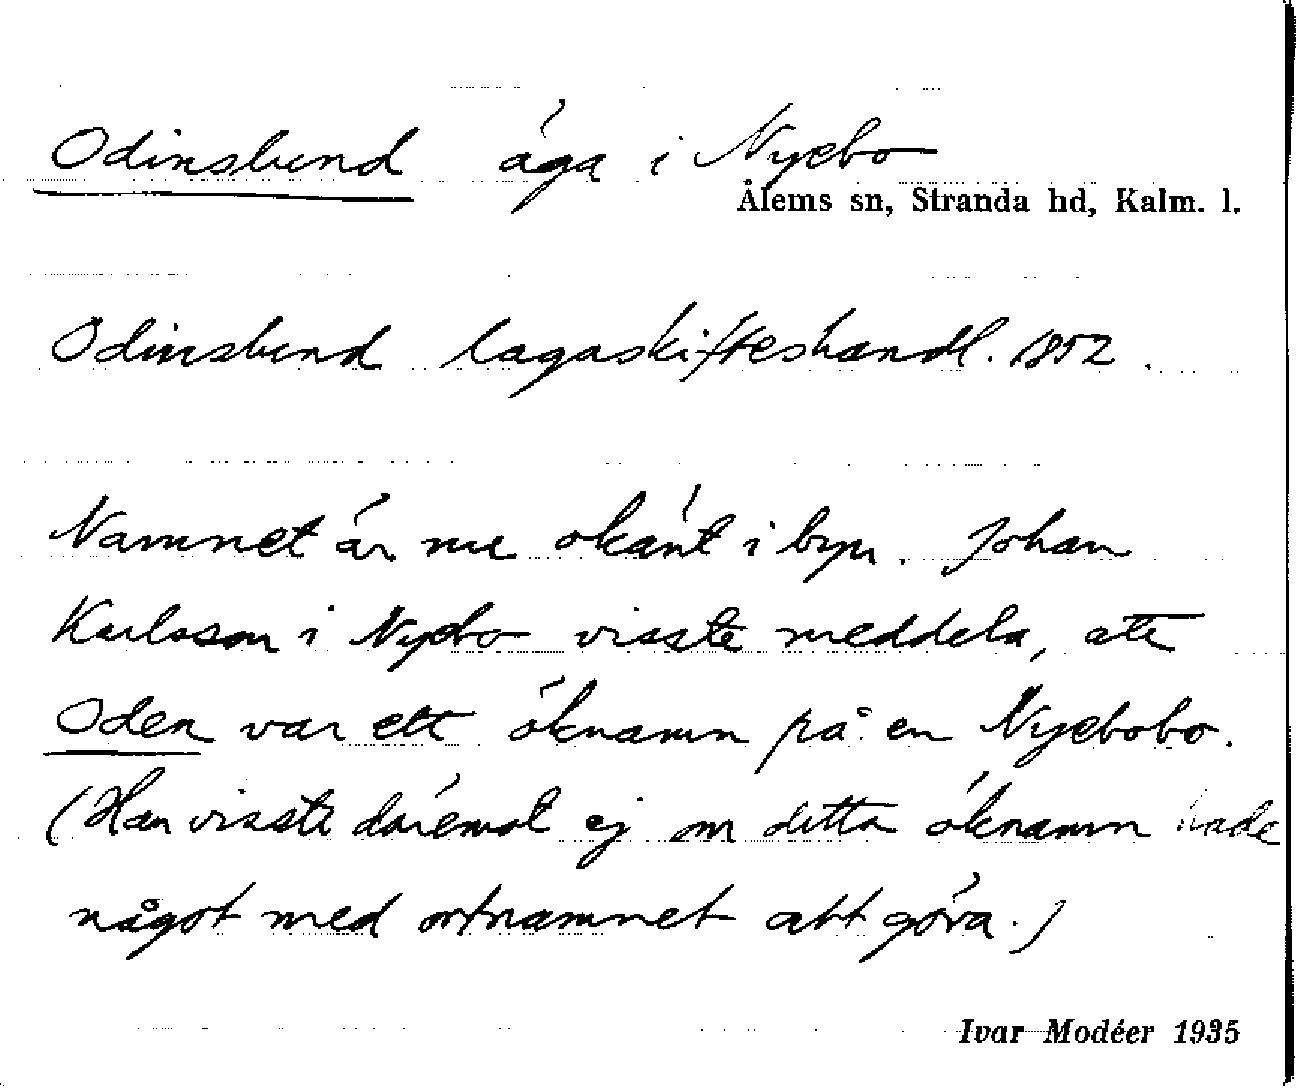 Odinslund äga i Nyebo
Ålems sn, Stranda hd, Kalm. l.
Odinslund lagaskifteshandl. 1852.
Namnet är nu okänt i byn. Johan
Karlsson i Nyebo visste meddela, att
Oden var ett öknamn på en Nyebobo.
(Han visste däremot ej om detta öknamn hade
något med ortnamnet att göra.)
Ivar Modéer 1935